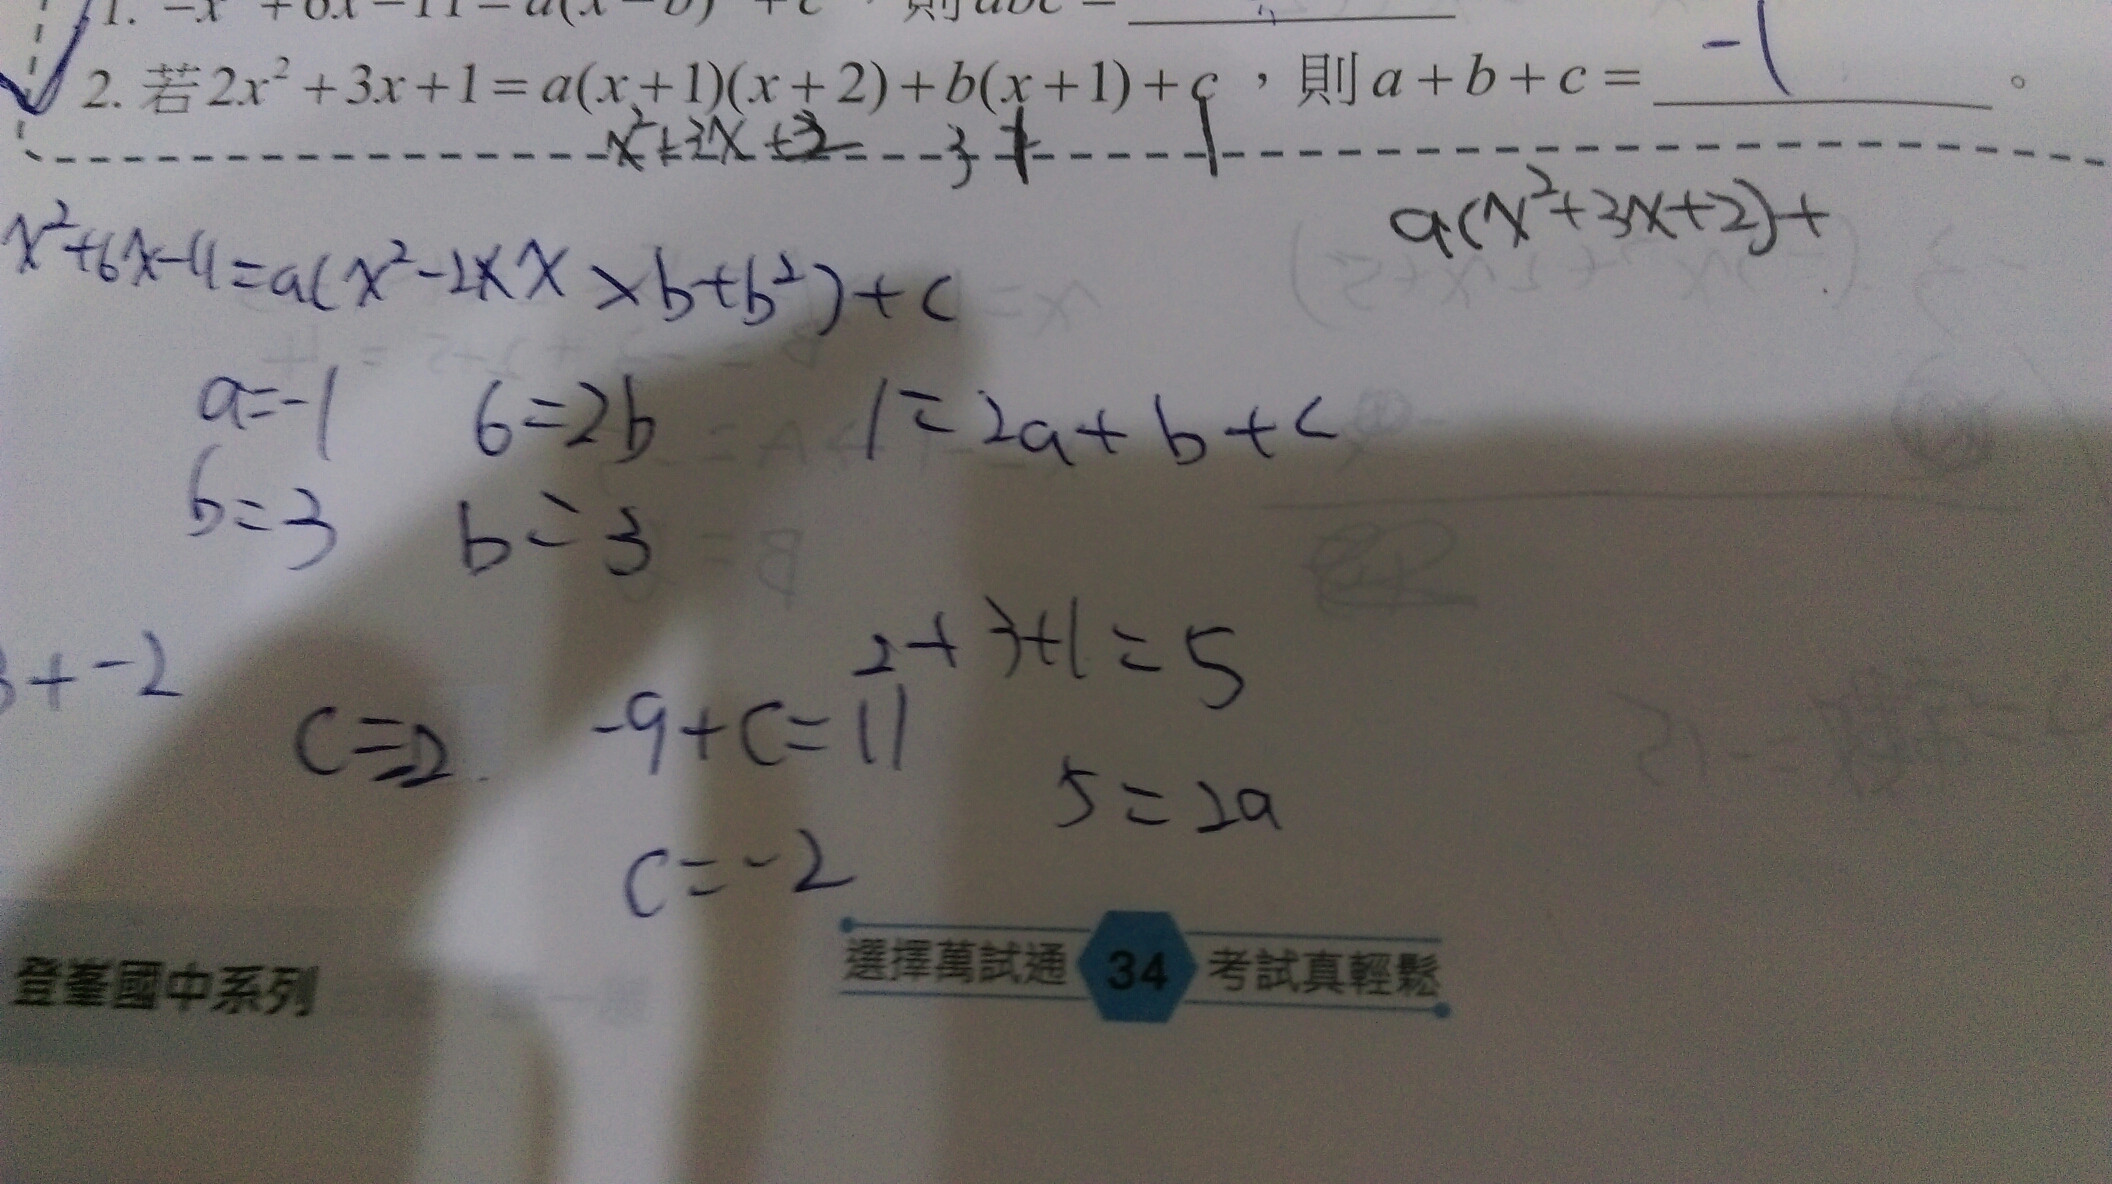 1. −x² + 6x − 11 = a(x − b)² + c，則abc =
2. 若2x² + 3x + 1 = a(x + 1)(x + 2) + b(x + 1) + c，則a + b + c = -1 。
x²+3x+2 3
a(x²+3x+2)+
x²+6x-11=a(x²-2×x×b+b²)+c
a=-1 6=2b 1=2a+b+c
b=3 b=3
2+3+1=5
3+-2
c=-2 -9+c=11
5=2a
c=-2
登峯國中系列
選擇萬試通 34 考試真輕鬆